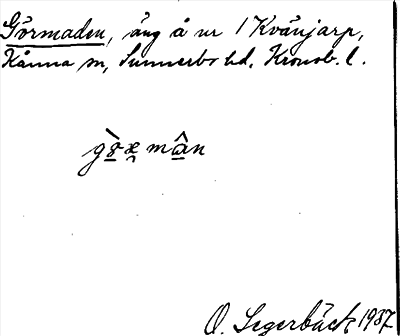 Görmaden, äng å nr 1 Kvänjarp,
Kånna sn, Sunnerbo hd, Kronob. l.
O. Segerbäck 1937